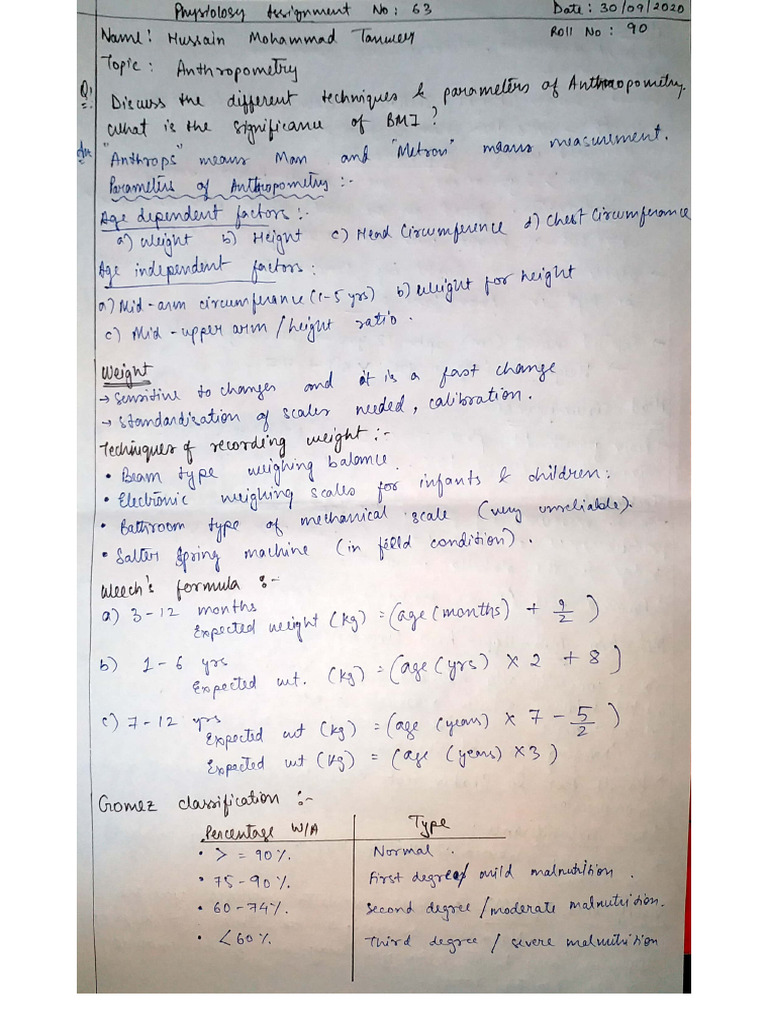 Physiology Assignment No: 63 Date: 30/09/2020
Name: Hussain Mohammad Tanweer Roll No: 90
Topic: Anthropometry
Q1 Discuss the different techniques & parameters of Anthropometry.
What is the significance of BMI?
Ans "Anthrops" means Man and "Metron" means measurement.
Parameters of Anthropometry :-
Age dependent factors :-
a) Weight b) Height c) Head Circumference d) Chest Circumferance
Age independent factors :
a) Mid-arm circumferance (1-5 yrs) b) Weight for height
c) Mid-upper arm/height ratio.
Weight
→ Sensitive to changes and it is a fast change
→ Standardisation of scales needed, calibration.
Techniques of recording weight :-
• Beam type weighing balance.
• Electronic weighing scales for infants & children.
• Bathroom type of mechanical scale (very unreliable).
• Salter Spring machine (in field condition).
Weech's formula :-
a) 3-12 months
Expected weight (kg) = (age (months) + 9/2)
b) 1-6 yrs
Expected wt. (kg) = (age (yrs) × 2 + 8)
c) 7-12 yrs
Expected wt (kg) = (age (years) × 7 - 5/2)
Expected wt (kg) = (age (years) × 3)
Gomez classification :-
Percentage W/A Type
• > = 90%. Normal.
• 75-90%. First degree/ mild malnutrition.
• 60-74%. Second degree/moderate malnutrition.
• <60%. Third degree / severe malnutrition